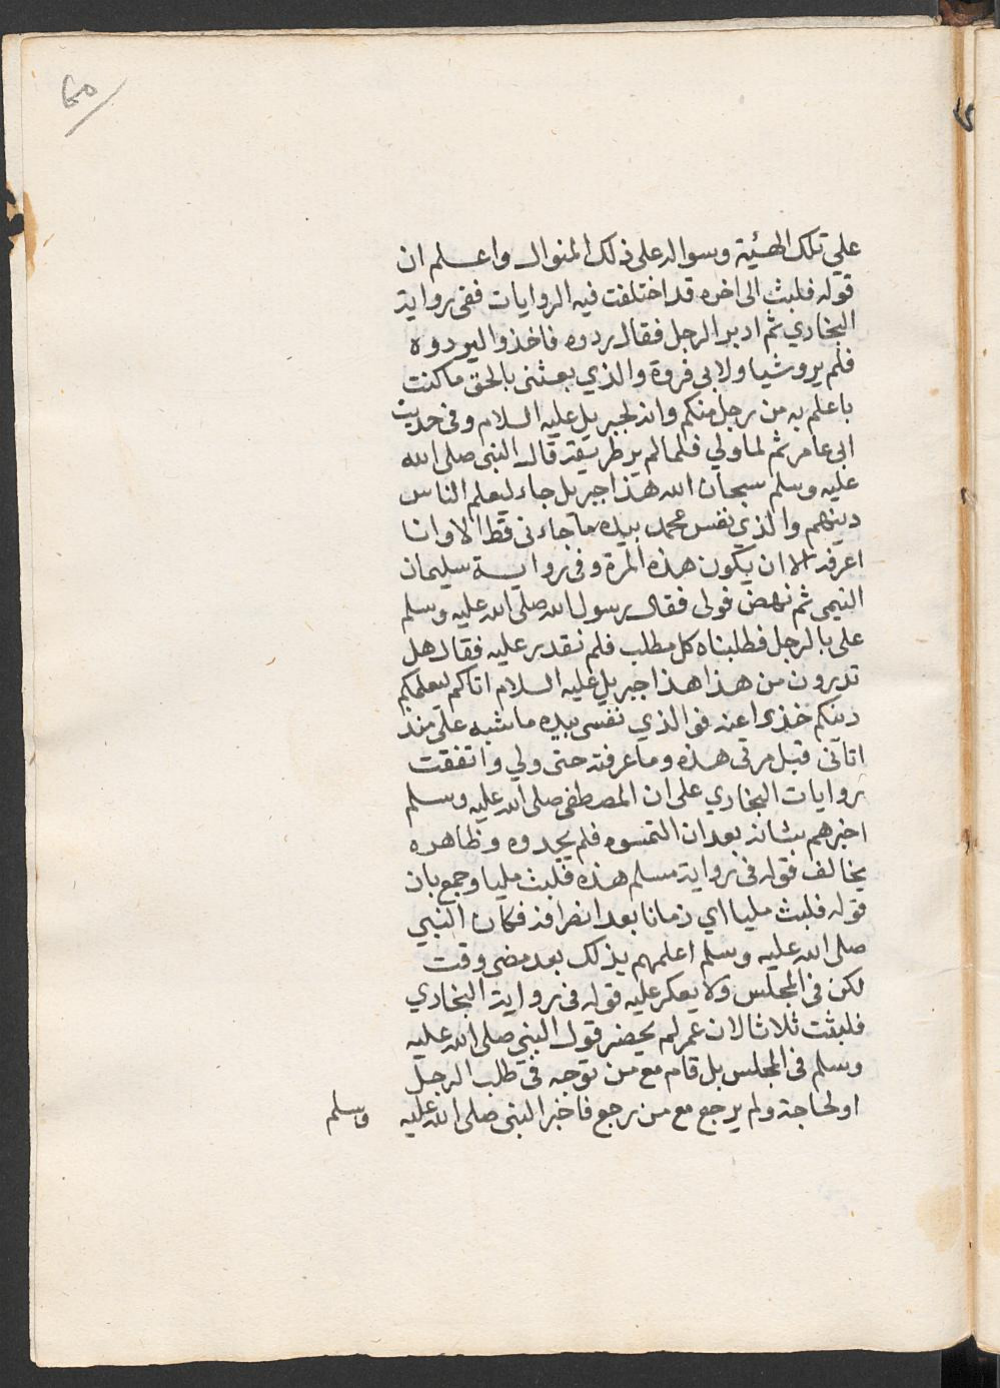 على تلك الهيئة وسواله على ذلك المنوال واعلم ان
قوله فلبث الى اخره قد اختلفت فيه الروايات ففى رواية
البخاري ثم ادبر الرجل فقال ردوه فاخذوا ليردوه
فلم يروشيا ولابي فروة والذي بعثنى بالحق ما كنت
باعلم به من رجل منكم وانه لجبريل عليه السلام وفى حديث
ابى عامر ثم لما ولي فلما لم ير طريقه قال النبى صلى الله
عليه وسلم سبحان الله هذا جبريل جاء ليعلم الناس
دينهم والذي نفس محمد بيده ما جاءنى قط الا وانا
اعرفه الا ان يكون هذه المرة وفى رواية سليمان
التيمى ثم نهض فولى فقال رسول الله صلى الله عليه وسلم
على بالرجل فطلبناه كل مطلب فلم نقدر عليه فقال هل
تدرون من هذا هذا جبريل عليه السلام اتاكم ليعلمكم
دينكم خذوا عنه فوالذي نفسى بيده ما شبه على منذ
اتانى قبل مرتى هذه وما عرفته حتى ولي واتفقت
روايات البخاري على ان المصطفى صلى الله عليه وسلم
اخبرهم بشانه بعد ان التمسوه فلم يجدوه وظاهره
يخالف قوله فى رواية مسلم هذه فلبث مليا وجمع بان
قوله فلبث مليا اي زمانا بعد انصرافه فكان النبي
صلى الله عليه وسلم اعلمهم بذلك بعد مضى وقت
لكن فى المجلس ولا يعكر عليه قوله فى رواية البخاري
فلبثت ثلاثا لان عمر لم يحضر قول النبي صلى الله عليه
وسلم فى المجلس بل قام مع من توجه فى طلب الرجل
او لحاجة ولم يرجع مع من رجع فاخبر النبى صلى الله عليه
وسلم